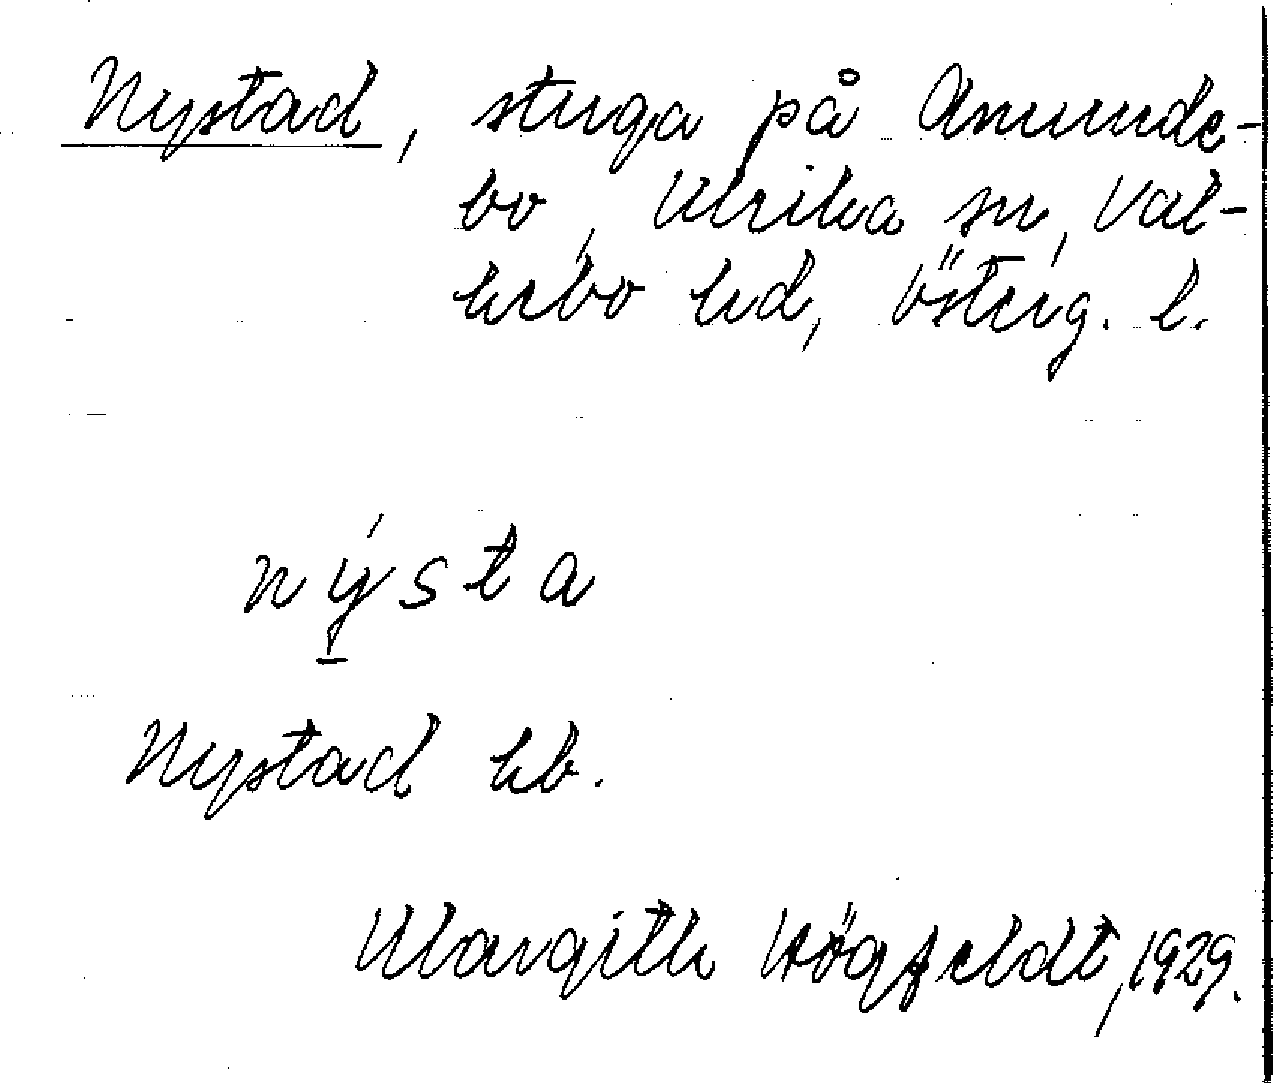 Nystad, stuga på Amunde-
bo, Ulrika sn, Val-
kebo hd, Österg. l.
nýsta
Nystad kb.
Margith Högfeldt, 1929.